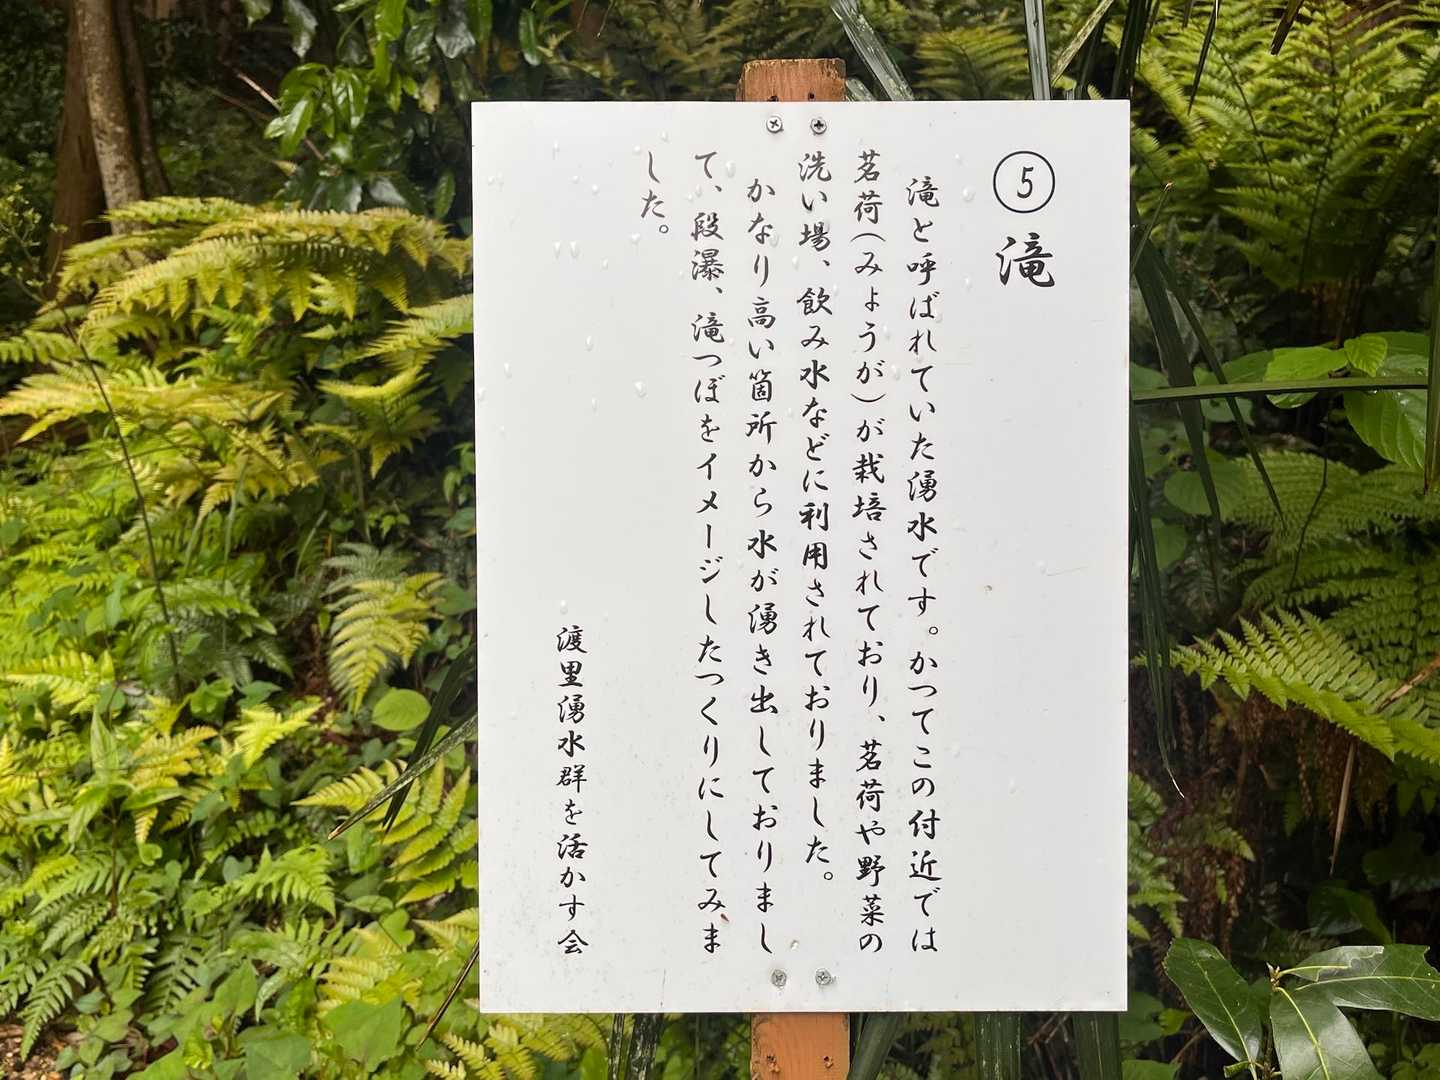 ⑤滝
滝と呼ばれていた湧水です。かつてこの付近では
茗荷(みょうが)が栽培されており、茗荷や野菜の
洗い場、飲み水などに利用されておりました。
かなり高い箇所から水が湧き出しておりまし
て、段瀑、滝つぼをイメージしたつくりにしてみま
した。
渡里湧水群を活かす会